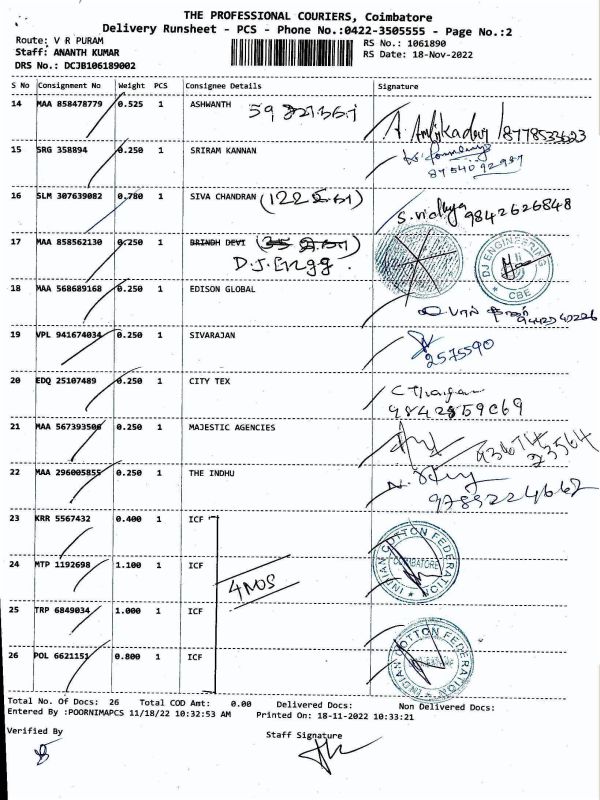 THE PROFESSIONAL COURIERS, Coimbatore
Delivery Runsheet - PCS - Phone No.:0422-3505555 - Page No.:2
Route: V R PURAM
RS No.: 1061890
Staff: ANANTH KUMAR
RS Date: 18-Nov-2022
DRS No.: DCJB106189002
S No Consignment No Weight PCS Consignee Details Signature
14 MAA 858478779 0.525 1 ASHWANTH 59
8778533623
15 SRG 358894 0.250 1 SRIRAM KANNAN
8754092987
16 SLM 307639082 0.780 1 SIVA CHANDRAN
S. vidhya 9842626848
17 MAA 858562130 0.250 1 BRINDH DEVI
D.J. Engg.
DJ ENGINEERING
CBE
18 MAA 568689168 0.250 1 EDISON GLOBAL
19 VPL 941674034 0.250 1 SIVARAJAN
2575590
20 EDQ 25107489 0.250 1 CITY TEX
21 MAA 567393506 0.250 1 MAJESTIC AGENCIES
22 MAA 296005855 0.250 1 THE INDHU
23 KRR 5567432 0.400 1 ICF
INDIAN COTTON FEDERATION
COIMBATORE
24 MTP 1192698 1.100 1 ICF
4 NOS
25 TRP 6849034 1.000 1 ICF
26 POL 6621151 0.800 1 ICF
INDIAN COTTON FEDERATION
Total No. Of Docs: 26 Total COD Amt: 0.00 Delivered Docs: Non Delivered Docs:
Entered By :POORNIMAPCS 11/18/22 10:32:53 AM Printed On: 18-11-2022 10:33:21
Verified By
Staff Signature